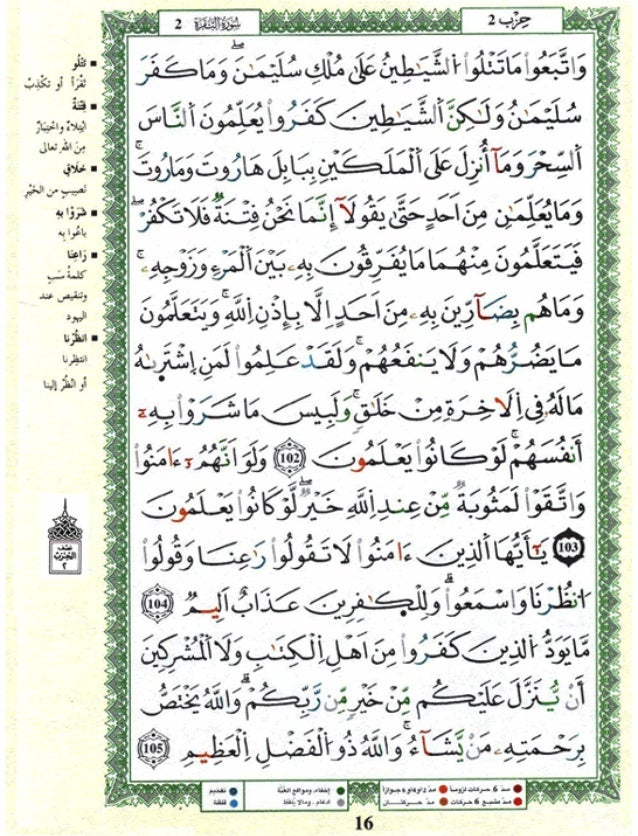 حِزْب 2
سُورَةُ البَقَرَة 2
وَاتَّبَعُواْ مَا تَتْلُواْ الشَّيَٰطِينُ عَلَىٰ مُلْكِ سُلَيْمَٰنَ وَمَا كَفَرَ
سُلَيْمَٰنُ وَلَٰكِنَّ الشَّيَٰطِينَ كَفَرُواْ يُعَلِّمُونَ النَّاسَ
السِّحْرَ وَمَآ أُنزِلَ عَلَى الْمَلَكَيْنِ بِبَابِلَ هَارُوتَ وَمَارُوتَ
وَمَا يُعَلِّمَٰنِ مِنَ اَحَدٍ حَتَّىٰ يَقُولَآ إِنَّمَا نَحْنُ فِتْنَةٌ فَلَا تَكْفُرْ
فَيَتَعَلَّمُونَ مِنْهُمَا مَا يُفَرِّقُونَ بِهِۦ بَيْنَ الْمَرْءِ وَزَوْجِهِۦ
وَمَا هُم بِضَآرِّينَ بِهِۦ مِنَ اَحَدٍ اِلَّا بِإِذْنِ اِللَّهِ وَيَتَعَلَّمُونَ
مَا يَضُرُّهُمْ وَلَا يَنفَعُهُمْ وَلَقَدْ عَلِمُواْ لَمَنِ اِشْتَر۪ىٰهُ
مَا لَهُۥ فِى اِلَاخِرَةِ مِنْ خَلَٰقٍ وَلَبِيسَ مَا شَرَوْاْ بِهِۦٓ
أَنفُسَهُمْ لَوْ كَانُواْ يَعْلَمُونَ 102 وَلَوَ اَنَّهُمُۥٓ ءَامَنُواْ
وَاتَّقَوْاْ لَمَثُوبَةٌ مِّنْ عِندِ اِللَّهِ خَيْرٌ لَّوْ كَانُواْ يَعْلَمُونَ
103 يَٰٓأَيُّهَا اَلذِينَ ءَامَنُواْ لَا تَقُولُواْ رَٰعِنَا وَقُولُواْ
اُنظُرْنَا وَاسْمَعُواْ وَلِلْكٰ۪فِرِينَ عَذَابٌ اَلِيمٌ 104
مَّا يَوَدُّ اُلذِينَ كَفَرُواْ مِنَ اَهْلِ اِلْكِتَٰبِ وَلَا اَلْمُشْرِكِينَ
أَنْ يُّنَزَّلَ عَلَيْكُم مِّنْ خَيْرٍ مِّن رَّبِّكُمْ وَاللَّهُ يَخْتَصُّ
بِرَحْمَتِهِۦ مَنْ يَّشَآءُ وَاللَّهُ ذُو اُلْفَضْلِ اِلْعَظِيمِ 105
■ تَتْلُو
تَقْرَأ أو تكْذِبُ
■ فِتْنَةٌ
ابْتِلاءٌ واخْتِبَارٌ
مِنَ الله تعالى
■ خَلَاقٍ
نَصِيبٍ من الخَيْرِ
■ شَرَوْا بِهِ
باعُوا بِهِ
■ رَاعِنَا
كلمةُ سَبّ
وتنقيص عند
اليهود
■ انظُرْنَا
انتظِرنا
أو انْظُر إلينا
نصف
الحزب
٢
مدّ 6 حركات لزوماً
مدّ 2 أو 4 أو 6 جوازاً
إخفاء، ومواقع الغنّة
تفخيم
مدّ مشبع 6 حركات
مدّ حركتان
ادغام، وما لا يُلفظ
قلقلة
16